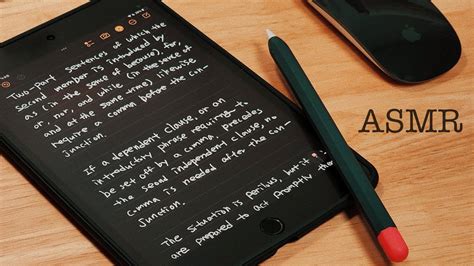 Two-part sentences of which the
second member is introduced by
as (in the sense of because), for,
or, nor, and while (in the sense of
and at the same time) likewise
require a comma before the con-
junction.
If a dependent clause, or an
introductory phrase requiring to
be set off by a comma, precedes
the second independent clause, no
comma is needed after the con-
junction.
The situation is perilous, but if
are prepared to act promptly, there
ASMR